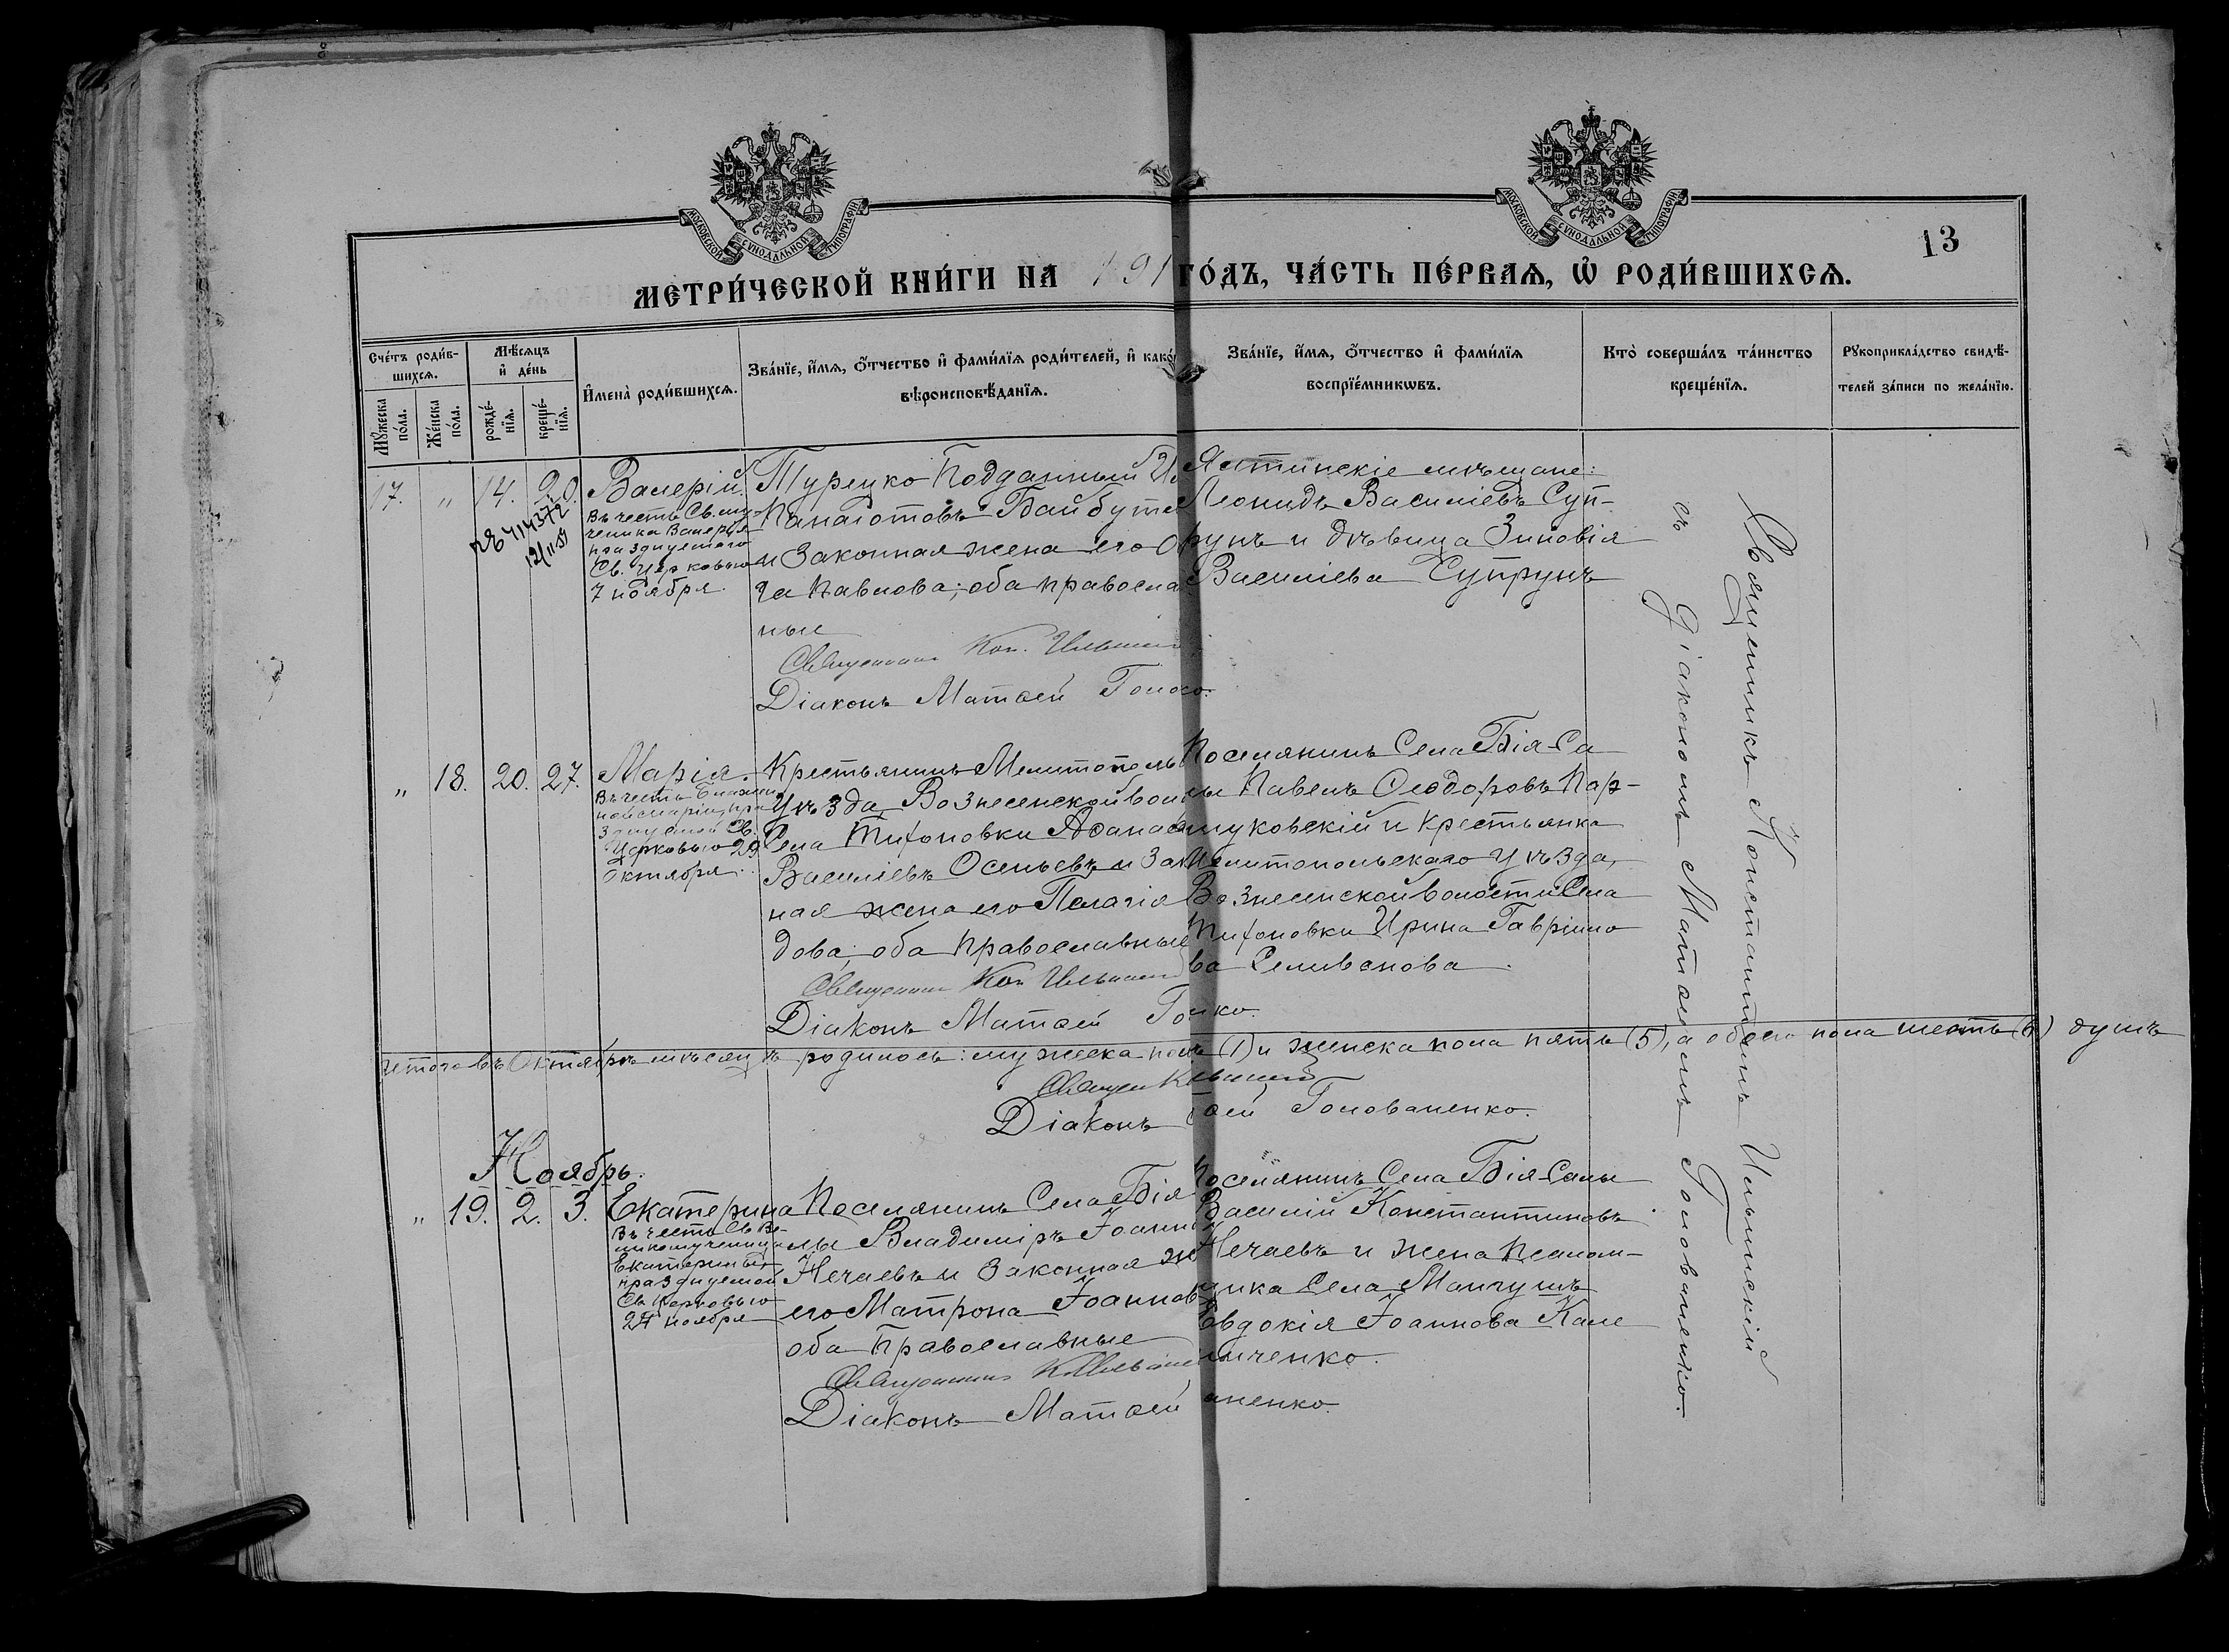 МОСКОВСКОЙ СѴНОДАЛЬНОЙ ТИПОГРАФІИ
МОСКОВСКОЙ СѴНОДАЛЬНОЙ ТИПОГРАФІИ
13
МЕТРИ́ЧЕСКОЙ КНИ́ГИ НА 191 ГО́ДЪ, ЧА́СТЬ ПЕ́РВАЯ, Ѡ РОДИ́ВШИХСЯ.
Сче́тъ роди́в-
шихся.
Мѣ́сяцъ
и҆ де́нь
Мꙋ́жеска
по́ла.
Же́нска
по́ла.
рожде́-
нїя.
креще́-
нїя.
И҆мена̀ роди́вшихся.
Зва́нїе, и҆́мя, ѻ҆́тчество и҆ фами́лїя роди́телей, и҆ како́
вѣроисповѣ́данїя.
Зва́нїе, и҆́мя, ѻ҆́тчество и҆ фами́лїя
воспрїе́мникѡвъ.
Кто̀ соверша́лъ та́инство
креще́нїя.
Рꙋкоприкла́дство свидѣ́-
телей за́писи по жела́нїю.
17. " 14. 20.
414372
12/II-54
Валерій.
Въ честь Св. му-
ченика Валерія
празднуемаго
Св. Церковью
7 ноября.
Турецко Подданный
Панаготовъ Байбурта
и Законная жена его О
га Павлова; оба правосла
ные
Священникъ Кон. Ильинскі
Діаконъ Матѳей Голов
Ялтинскіе мѣщане:
Леонидъ Василіевъ Суп-
рунъ и дѣвица Зиновія
Василіева Супрунъ
Священникъ Константинъ Ильинскій
съ Діакономъ Матѳеемъ Голованенко.
" 18. 20. 27.
Марія.
Въ честь Блажен
ной Маріи, пра
зднуемой Св.
Церковью 29
Октября.
Крестьянинъ Мелитополь
Уѣзда Вознесенской вол
Села Тихоновки Аѳанас
Василіевъ Осеньевъ и Зак
ная жена его Пелагія
дова; оба православные
Священник Кон Ильински
Діаконъ Матѳей Го нко.
Поселянинъ Села Бія-Са
лы Павелъ Ѳеодоровъ Пар-
муковскій и крестьянка
Мелитопольскаго Уѣзда,
Вознесенской волости Села
Тихоновки Ирина Гавріило
ва Селиванова.
Итого въ Октябрѣ мѣсяцѣ родилось: мужеска пола (1) и женска пола пять (5), а обоего пола шесть (6) душъ
Священ К Ильинскій
Діаконъ ѳей Голованенко.
Ноябрь.
" 19. 2. 3.
Екатерина
Въ честь Св. Ве-
ликомученицы
Екатерины,
празднуемой
Св. Церковью
24 ноября
Поселянинъ Села Бія
лы Владиміръ Іоанн
Нечаевъ и Законная ж
его Матрона Іоаннов
оба Православные
Священникъ К Ильински
Діаконъ Матѳей аненко.
Поселянинъ Села Бія-Салы
Василій Константиновъ
Нечаевъ и жена псалом-
щика Села Мангушъ
Евдокія Іоаннова Кале
ниченко.